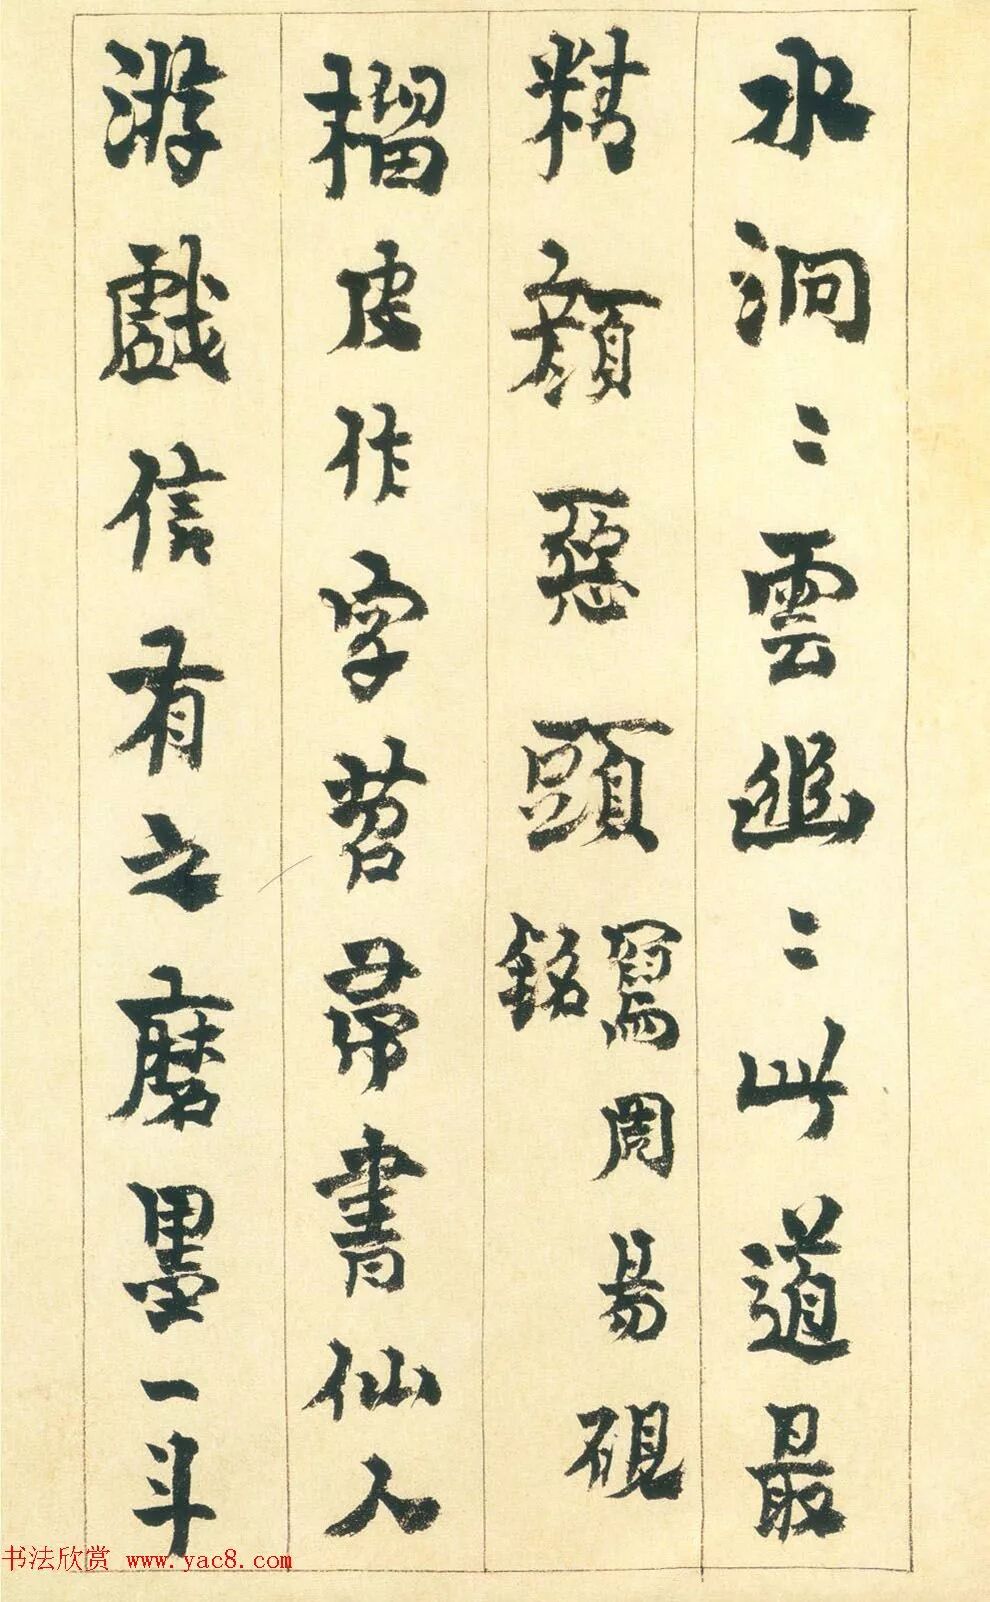 水洞〻雲幽〻此道最
精顏惡頭寫周易硯
銘
榴皮作字苕帚書仙人
游戲信有之磨墨一斗
书法欣赏 www.yac8.com